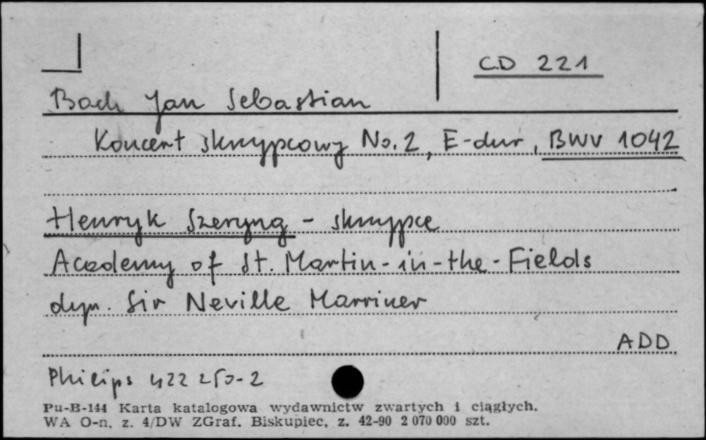 CD 221
Bach Jan Sebastian
Koncert skrzypcowy No. 2, E-dur, BWV 1042
Henryk Szeryng - skrzypce
Academy of St. Martin-in-the-Fields
dyr. Sir Neville Marriner
ADD
Philips 422 250-2
Pu-B-144 Karta katalogowa wydawnictw zwartych i ciągłych.
WA O-n, z. 4/DW ZGraf. Biskupiec, z. 42-90 2 070 000 szt.